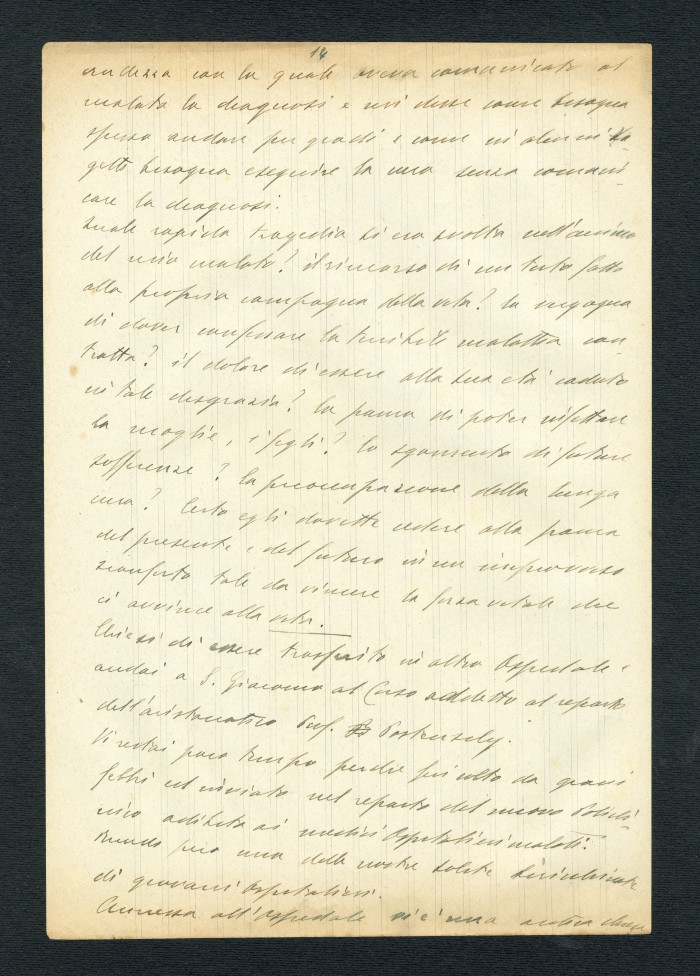 14
crudezza con la quale aveva comunicato al
malato la diagnosi e mi disse come bisogna
spesso andare per gradi e come in alcuni sog-
getti bisogna eseguire la cura senza comuni
care la diagnosi.
Quale rapida tragedia si era svolta nell'animo
del mio malato? il rimorso di un torto fatto
alla propria compagna della vita? la vergogna
di dover confessare la terribile malattia con
tratta? il dolore di essere alla sua età caduto
in tale disgrazia? la paura di poter infettare
la moglie, i figli? lo sgomento di future
sofferenze? la preoccupazione della lunga
cura? Certo egli dovette cedere alla paura
del presente e del futuro in un improvviso
sconforto tale da vincere la forza vitale che
ci avvince alla vita.
Chiesi di essere trasferito in altro Ospedale e
andai a S. Giacomo al Corso addetto al reparto
dell'aristocratico Prof. Postempsky.
Vi restai poco tempo perchè fui colto da gravi
febbri ed inviato nel reparto del nuovo Policli-
nico adibito ai medici Ospitalieri malati.
però una delle nostre solite
di giovani Ospitalieri.
Annessa all'Ospedale vi è una antica chiesa